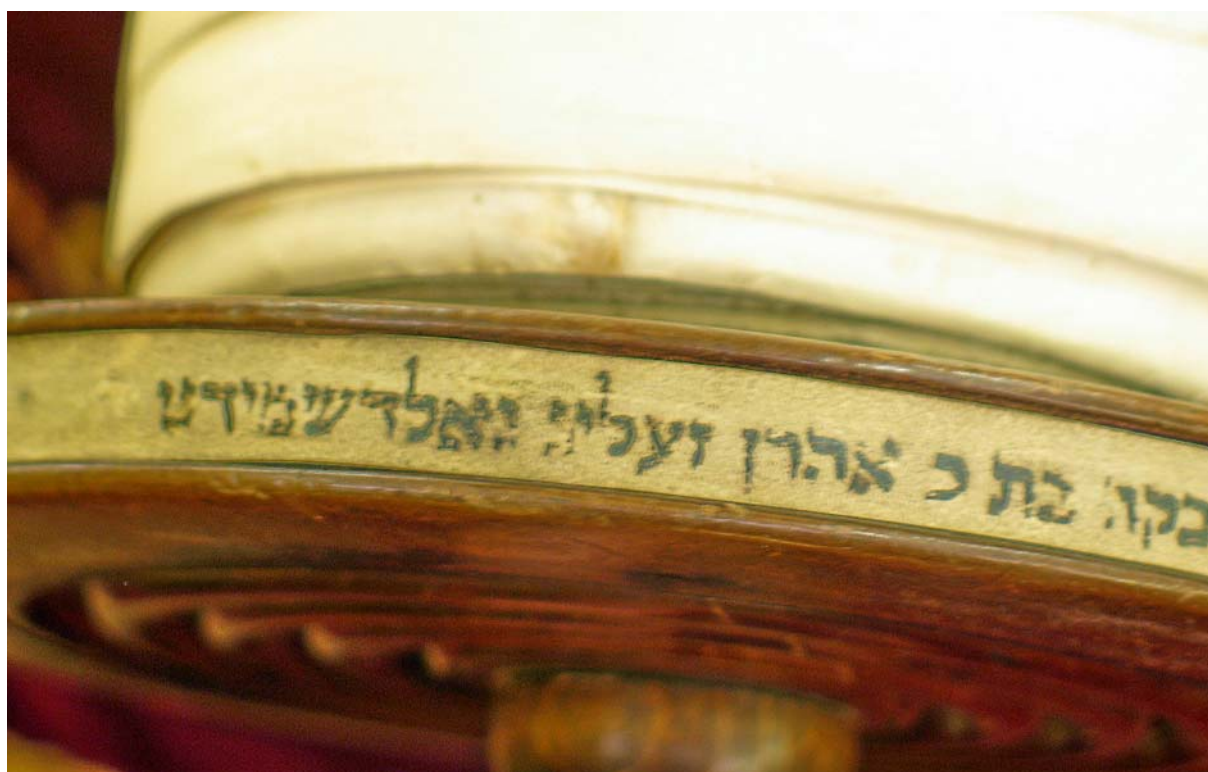 בקה בת כ אהרן זעליג גאלדשמידט